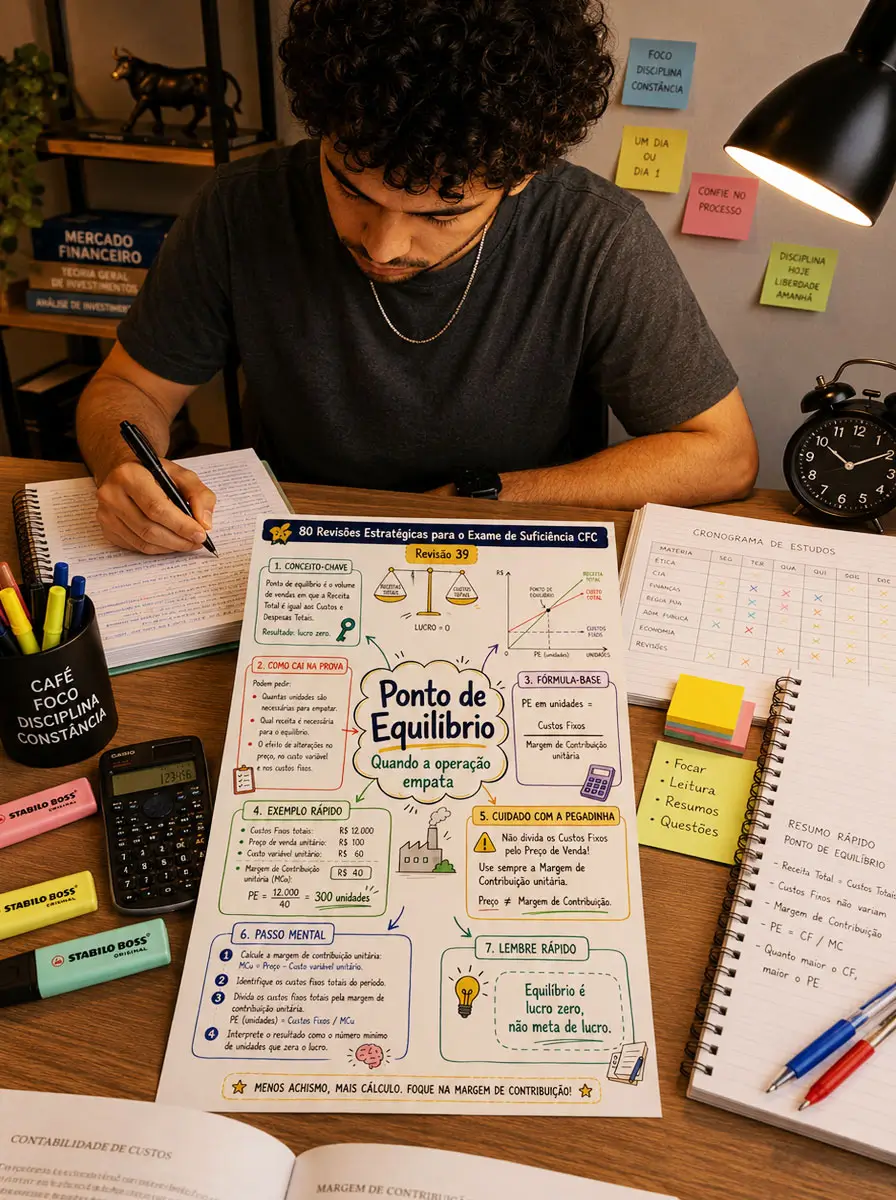 FOCO
DISCIPLINA
CONSTÂNCIA
UM DIA
OU
DIA 1
CONFIE NO
PROCESSO
DISCIPLINA
HOJE
LIBERDADE
AMANHÃ
MERCADO
FINANCEIRO
TEORIA GERAL
DE INVESTIMENTOS
ANÁLISE DE INVESTIMENTOS
80 Revisões Estratégicas para o Exame de Suficiência CFC
Revisão 39
1. CONCEITO-CHAVE
Ponto de equilíbrio é o volume
de vendas em que a Receita
Total é igual aos Custos e
Despesas Totais.
Resultado: lucro zero.
RECEITAS
TOTAIS
CUSTOS
TOTAIS
LUCRO = 0
R$
RECEITA
TOTAL
CUSTO
TOTAL
PONTO DE
EQUILÍBRIO
CUSTOS
FIXOS
0
PE (unidades)
UNIDADES
2. COMO CAI NA PROVA
Podem pedir:
• Quantas unidades são
necessárias para empatar.
• Qual receita é necessária
para o equilíbrio.
• O efeito de alterações no
preço, no custo variável
e nos custos fixos.
Ponto de
Equilíbrio
Quando a operação
empata
3. FÓRMULA-BASE
PE em unidades =
Custos Fixos
Margem de Contribuição
unitária
4. EXEMPLO RÁPIDO
• Custos Fixos totais: R$ 12.000
• Preço de venda unitário: R$ 100
• Custo variável unitário: R$ 60
• Margem de Contribuição
unitária (MCu): R$ 40
PE = 12.000 / 40 = 300 unidades
5. CUIDADO COM A PEGADINHA
Não divida os Custos Fixos
pelo Preço de Venda!
Use sempre a Margem de
Contribuição unitária.
Preço ≠ Margem de Contribuição.
6. PASSO MENTAL
1 Calcule a margem de contribuição unitária:
MCu = Preço - Custo variável unitário.
2 Identifique os custos fixos totais do período.
3 Divida os custos fixos totais pela margem de
contribuição unitária.
PE (unidades) = Custos Fixos / MCu
4 Interprete o resultado como o número mínimo
de unidades que zera o lucro.
7. LEMBRE RÁPIDO
Equilíbrio é
lucro zero,
não meta de lucro.
MENOS ACHISMO, MAIS CÁLCULO. FOQUE NA MARGEM DE CONTRIBUIÇÃO!
CAFÉ
FOCO
DISCIPLINA
CONSTÂNCIA
CASIO
123456
STABILO BOSS
ORIGINAL
STABILO BOSS
ORIGINAL
STABILO BOSS
ORIGINAL
10 11 12 1 2 3 4 5 6 7 8 9
CRONOGRAMA DE ESTUDOS
MATERIA SEG TER QUA QUI
ÉTICA
CIA
FINANÇAS
ADM. PUBLICA
ECONOMIA
REVISÕES
• Focar
• Leitura
• Resumos
• Questões
RESUMO RÁPIDO
PONTO DE EQUILÍBRIO
- Receita Total = Custos Totais
- Custos Fixos não variam
- Margem de Contribuição
- PE = CF / MC
- Quanto maior o CF,
maior o PE
CONTABILIDADE DE CUSTOS
MARGEM DE CONTRIBUIÇÃO